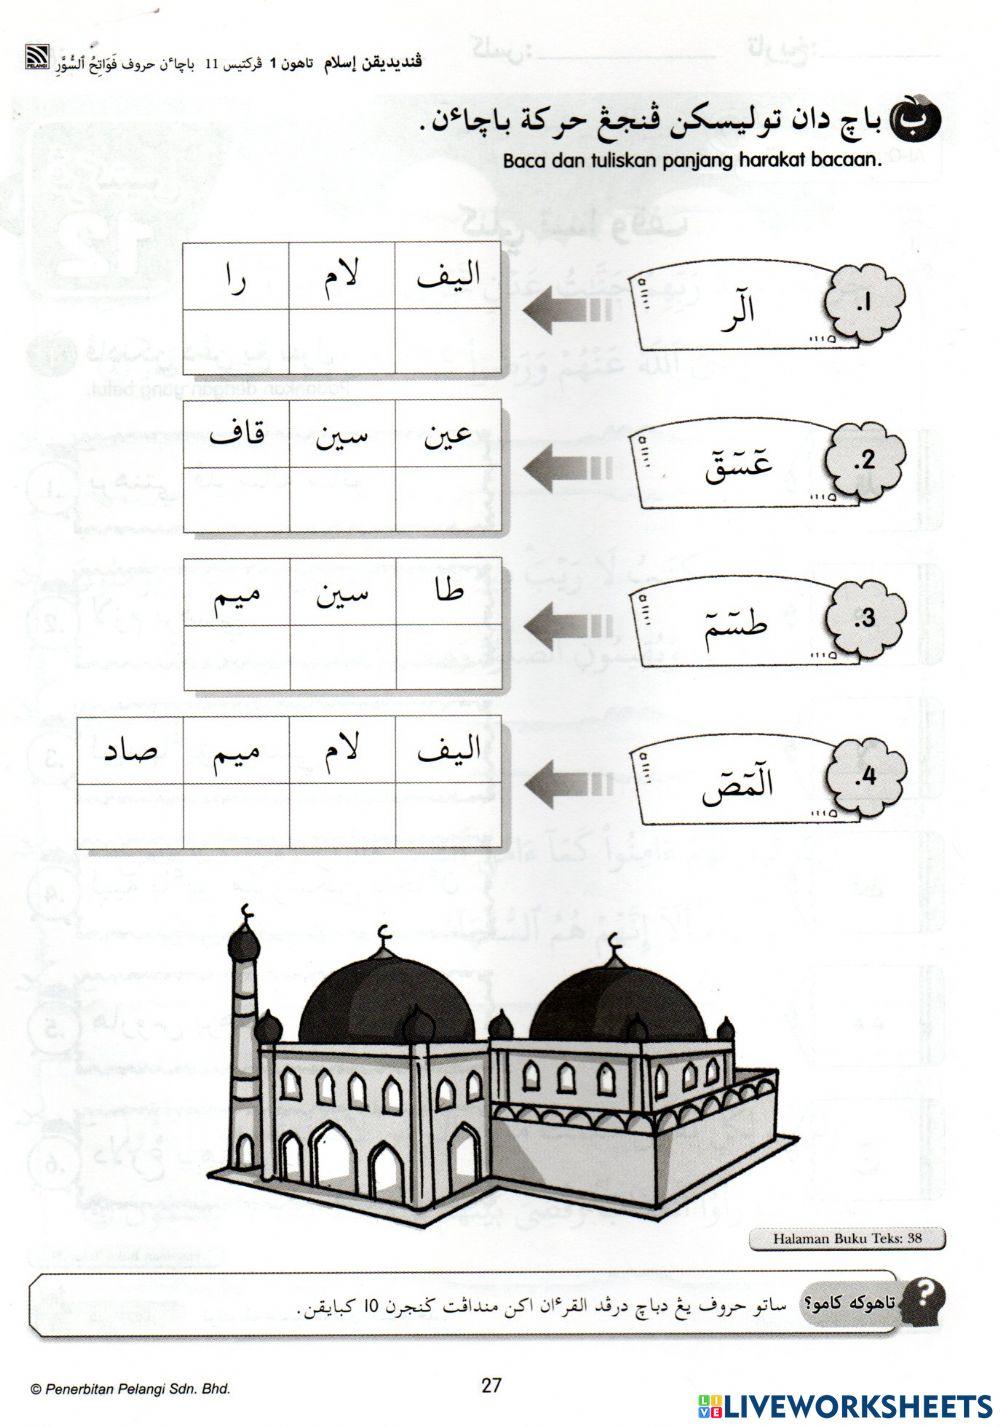 ڤنديديقن إسلام تاهون 1 ڤركتيس 11 باچاءن حروف فَوَاتِحُ ٱلسُّوَّرِ
PELANGI
ب باچ دان توليسكن ڤنجڠ حركة باچاءن.
Baca dan tuliskan panjang harakat bacaan.
1. الٓر
اليف لام را
2. عٓسٓقٓ
عين سين قاف
3. طسٓمٓ
طا سين ميم
4. الٓمٓصٓ
اليف لام ميم صاد
Halaman Buku Teks: 38
تاهوكه كامو؟ ساتو حروف يڠ دباچ درڤد القرءان اكن منداڤت ݢنجرن 10 كبايقن.
© Penerbitan Pelangi Sdn. Bhd.
27
LIVEWORKSHEETS